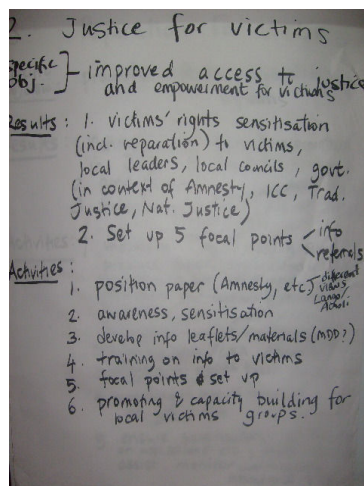 2. Justice for victims
Specific obj. - improved access to justice
and empowerment for victims
Results : 1. victims' rights sensitisation
(incl. reparation) to victims,
local leaders, local councils, govt.
(in context of Amnesty, ICC, Trad.
Justice, Nat. Justice)
2. Set up 5 focal points info
referrals
Activities :
1. position paper (Amnesty, etc.) different views Lango/Acholi
2. awareness, sensitisation
3. develop info leaflets/materials (MDD?)
4. training on info to victims
5. focal points set up
6. promoting & capacity building for
local victims groups.